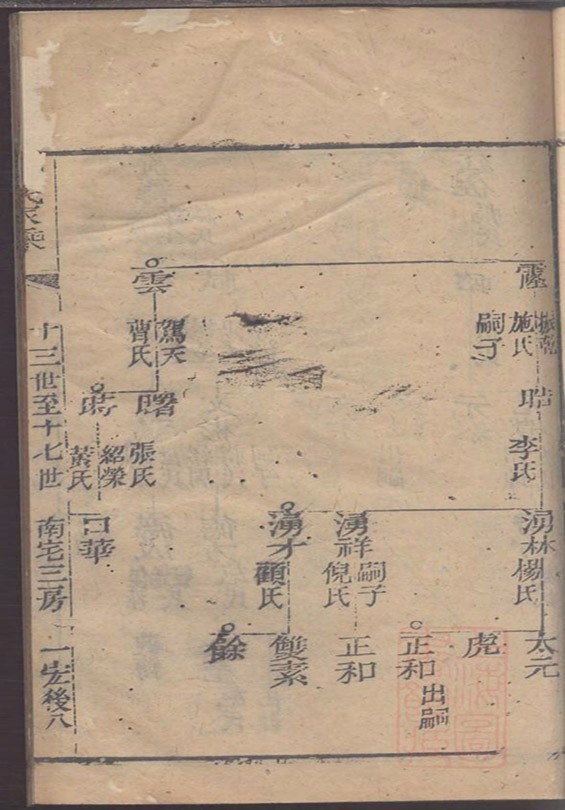 霆
振乾
施氏
嗣子
雲
駕天
曹氏
晧
李氏
曙
張氏
蒔
紹榮
黃氏
湧林
楊氏
湧祥
嗣子
倪氏
湧才
顧氏
日華
太元
虎
正和
出嗣
正和
雙素
餘
家乘
十三世至十七世
南宅三房
一宏後八